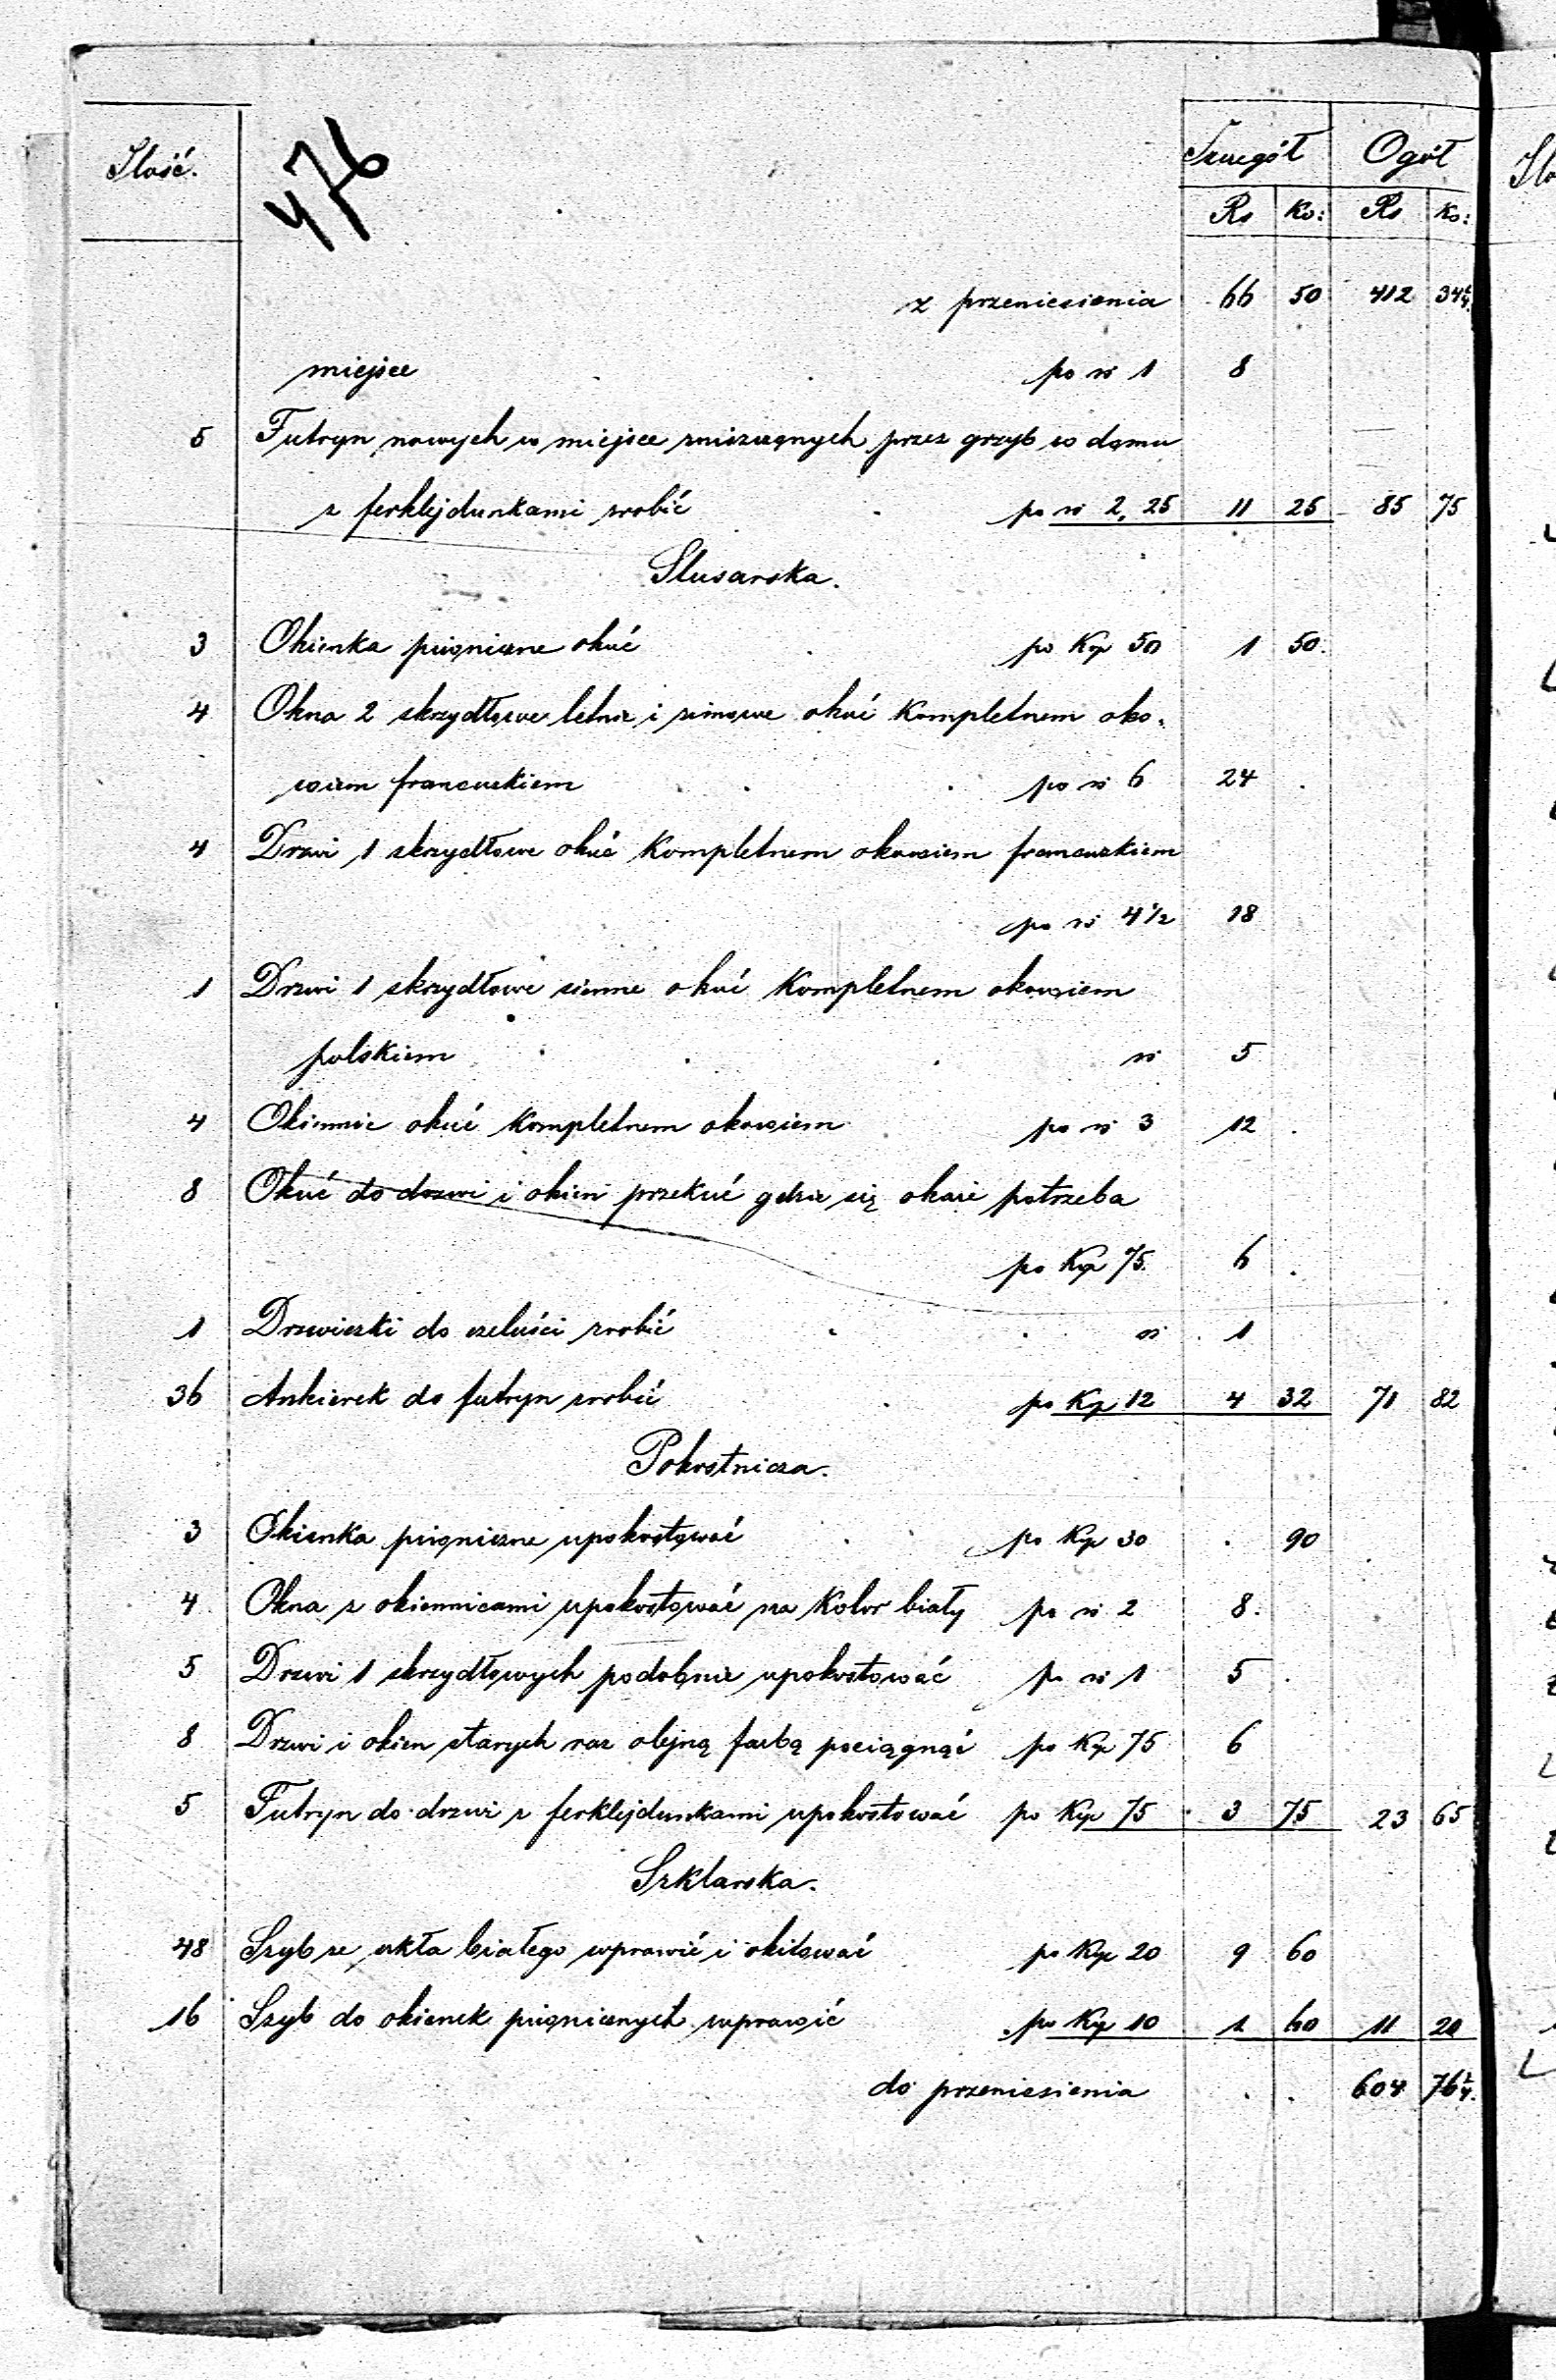 Ilość.
476
Szczegół Ogół
Rs Ko: Rs Ko:
z przeniesienia 66 50 412 34¼
miejsce po rs 1 8
5 Futryn nowych w miejsce zniszczonych przez grzyb w domu
z ferklejdunkami zrobić po rs 2,25 11 25 85 75
Slusarska.
3 Okienka piwniczne okuć po Kop 50 1 50
4 Okna 2 skrzydłowe letnie i zimowe okuć kompletnem oko-
wiem francuskiem po rs 6 24
4 Drzwi 1 skrzydłowe okuć kompletnem okowiem francuskiem
po rs 4½ 18
1 Drzwi 1 skrzydłowe sienne okuć kompletnem okowiem
polskiem rs 5
4 Okiennic okuć kompletnem okowiem po rs 3 12
8 Okuć do drzwi i okien przekuć gdzie się okaże potrzeba
po Kop 75 6
1 Drzwiczki do czeluści zrobić rs 1
36 Ankierek do futryn zrobić po Kop 12 4 32 71 82
Pokostnicza.
3 Okienka piwniczne upokostować po Kop 30 90
4 Okna z okiennicami upokostować na kolor biały po rs 2 8
5 Drzwi 1 skrzydłowych podobnie upokostować po rs 1 5
8 Drzwi i okien starych raz olejną farbą pociągnąć po Kop 75 6
5 Futryn do drzwi z ferklejdunkami upokostować po Kop 75 3 75 23 65
Szklarska.
48 Szyb ze szkła białego wprawić i okitować po Kop 20 9 60
16 Szyb do okienek piwnicznych wprawić po Kop 10 1 60 11 20
do przeniesienia 604 76¼